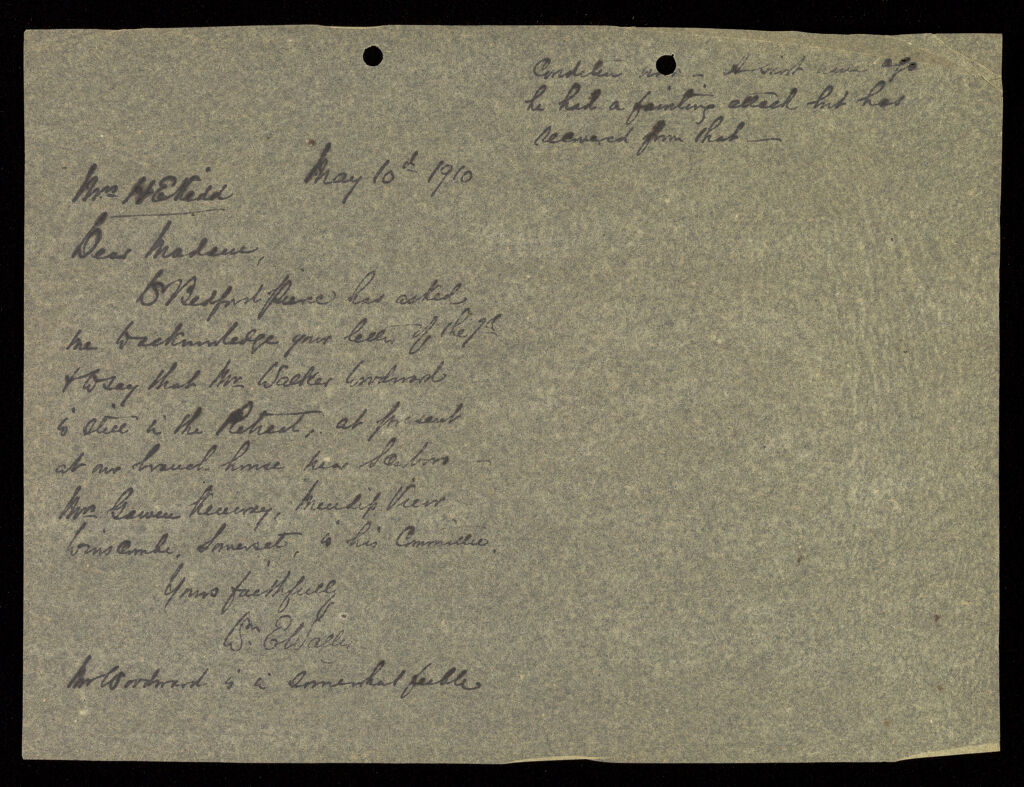 May 10th 1910
Mrs H E Kidd
Dear Madam,
Dr Bedford Pierce has asked
me to acknowledge your letter of the 7th
& to say that Mr Walker Woodward
is still in the Retreat, at present
at our branch house near Scarboro –
Mrs Gawen, Mendip View
Winscombe, Somerset, is his Committee.
Yours faithfully
Wm E Wallis
Mr Woodward is in a somewhat feeble
condition now – A short ago
he had a fainting attack but has
recovered from that –